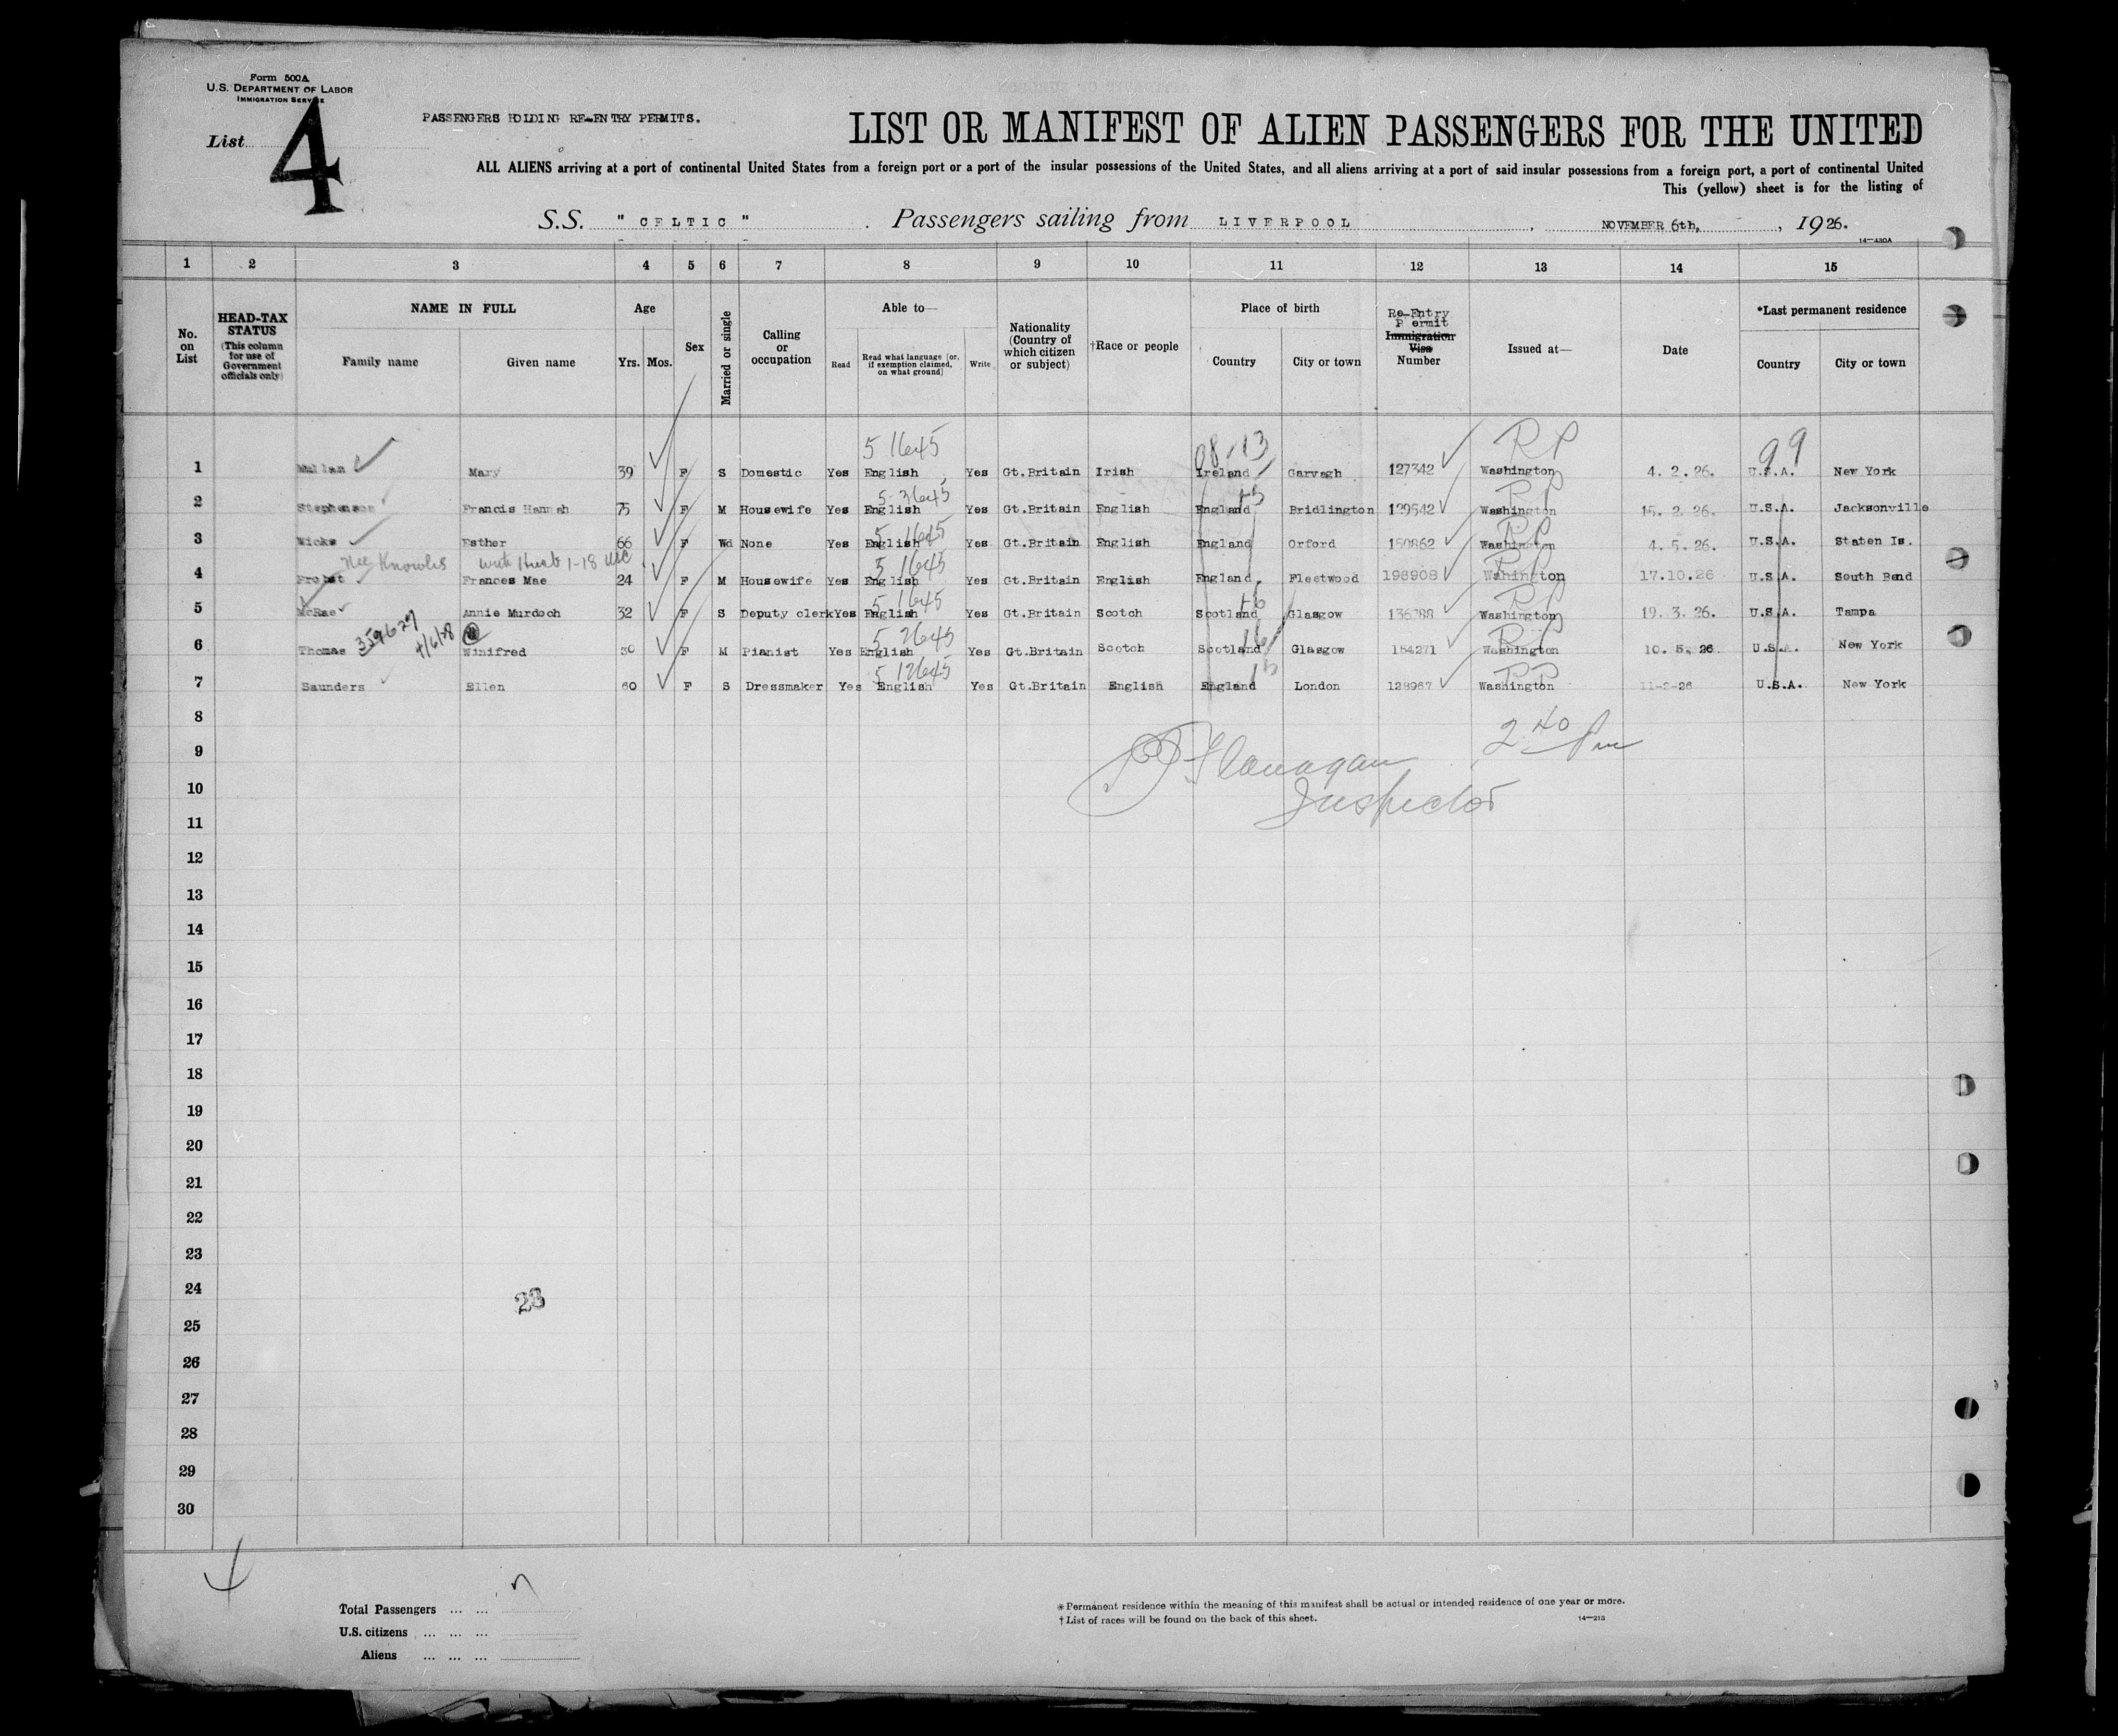 Form 500A
U.S. DEPARTMENT OF LABOR
IMMIGRATION SERVICE
List 4
PASSENGERS HOLDING RE-ENTRY PERMITS.
LIST OR MANIFEST OF ALIEN PASSENGERS FOR THE UNITED
ALL ALIENS arriving at a port of continental United States from a foreign port or a port of the insular possessions of the United States, and all aliens arriving at a port of said insular possessions from a foreign port, a port of continental United
This (yellow) sheet is for the listing of
S.S. " CELTIC " Passengers sailing from LIVERPOOL, NOVEMBER 6th, 1926.
14-430A
1 2 3 4 5 6 7 8 9 10 11 12 13 14 15
No. on List
HEAD-TAX STATUS (This column for use of Government officials only)
NAME IN FULL
Family name Given name
Age
Yrs. Mos.
Sex
Married or single
Calling or occupation
Able to—
Read Read what language (or, if exemption claimed, on what ground) Write
Nationality (Country of which citizen or subject)
†Race or people
Place of birth
Country City or town
Re-Entry Permit Immigration Visa Number
Issued at—
Date
*Last permanent residence
Country City or town
5 1645 08-13 RP 99
1 Mullan Mary 39 F S Domestic Yes English Yes Gt.Britain Irish Ireland Garvagh 127342 Washington 4. 2. 26. U.S.A. New York
5 3645 RP
2 Stephenson Francis Hannah 75 F M Housewife Yes English Yes Gt.Britain English England Bridlington 129542 Washington 15. 2. 26. U.S.A. Jacksonville
5 1645 RP
3 Wicks Esther 66 F Wd None Yes English Yes Gt.Britain English England Orford 150862 Washington 4. 5. 26. U.S.A. Staten Is.
Nee Knowles with Husb 1-18 USC 5 1645 RP
4 Probst Frances Mae 24 F M Housewife Yes English Yes Gt.Britain English England. Fleetwood 198908 Wahington 17.10.26 U.S.A. South Bend
5 1645 RP
5 McRae Annie Murdoch 32 F S Deputy clerk Yes English Yes Gt.Britain Scotch Scotland Glasgow 136788 Washington 19. 3. 26. U.S.A. Tampa
359627 4/6/28 5 2645 RP
6 Thomas Winifred 30 F M Pianist Yes English Yes Gt.Britain Scotch Scotland Glasgow 154271 Washington 10. 5. 26 U.S.A. New York
5 12645 RP
7 Saunders Ellen 60 F S Dressmaker Yes English Yes Gt.Britain English England London 128967 Washington 11-2-26 U.S.A. New York
8
2 40 Pm
9
Flanagan
10
Inspector
11
12
13
14
15
16
17
18
19
20
21
22
23
24
23
25
26
27
28
29
30
Total Passengers ... ... 7
U.S. citizens ... ... ...
Aliens ... ... ...
*Permanent residence within the meaning of this manifest shall be actual or intended residence of one year or more.
†List of races will be found on the back of this sheet.
14-213